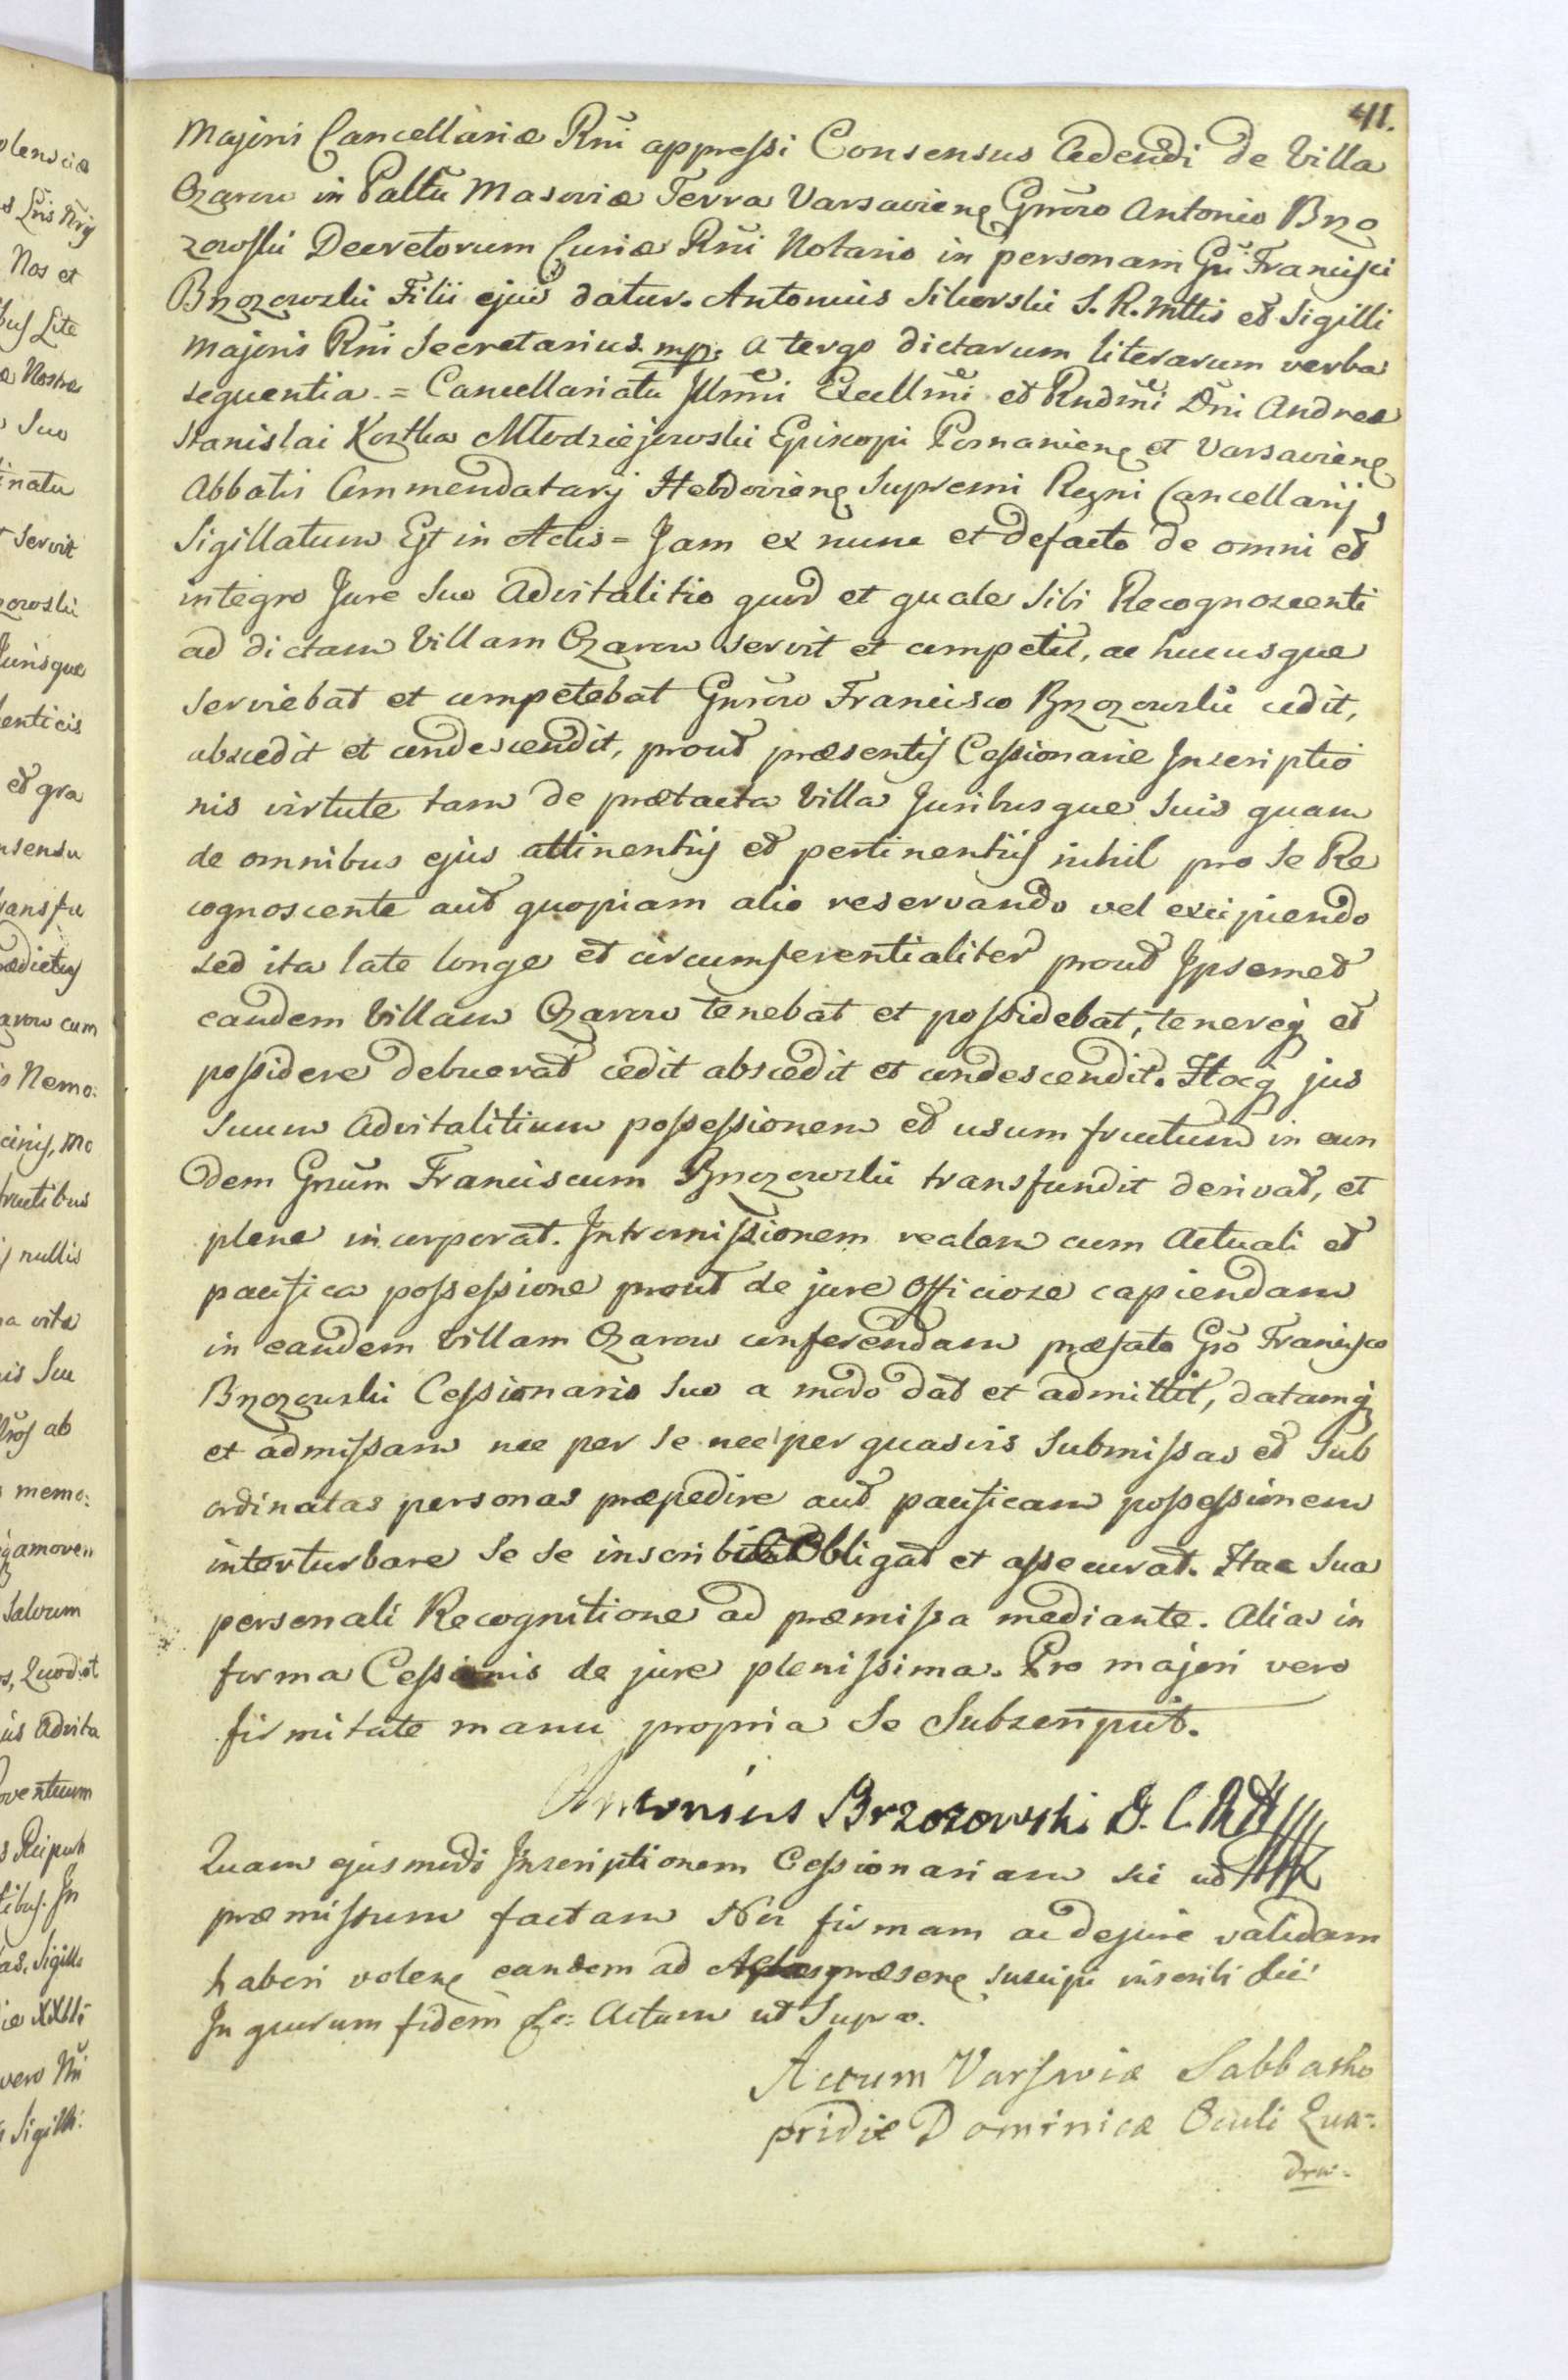 olenciæ
s Lris Nrij
Nos et
bus Lite
a Nostra
Suo
inatu
servit
zowski
Jurisque
enticis
et gra
nsensu
ansfu
ædictus
arow cum
Nemo:
cinis, Mo
ructibus
nullis
a vita
is Suu
ab
memo:
amoven
Salvum
s, Quod et
us Advita
oventuum
s Reipub
tibus. In
as, Sigillo
ie XXVII
vero Nri
Sigilli:
411.
Majoris Cancellariæ Rni appressi Consensus Cedendi de Villa
Ozarow in Palltu Masoviæ Terra Varsavieng Gnroso Antonio Brzo
zowski Decretorum Curiæ Rni Notario in personam Gsi Francisci
Brzozowski Filii ejus datur. Antonius Sikorski S. R. Mttis et Sigilli
Majoris Rni Secretarius. mp. A tergo dictarum literarum verba
sequentia = Cancellariatu Jllmi Excellmi et Rndmi Dni Andreæ
Stanislai Kostka Młodziejowski Episcopi Posnanieng et Varsavieng
Abbatis Commendatarij Hebdovieng Supremi Regni Cancellarij
Sigillatum Est in Actis = Jam ex nunc et defacto de omni et
integro Jure Suo Advitalitio quod et quale Sibi Recognoscenti
ad dictam Villam Ozarow servit et competit, ac hucusque
serviebat et competebat Gnroso Francisco Brzozowski cedit,
abscedit et condescendit, prout præsentis Cessionariæ Inscriptio
nis virtute tam de prætacta Villa Juribusque Suis quam
de omnibus ejus attinentijs et pertinentijs nihil pro Se Re
cognoscente aut quopiam alio reservando vel excipiendo
sed ita late longe et circumferentialiter prout Ipsemet
eandem Villam Ozarow tenebat et possidebat, tenereq et
possidere debuerat cedit abscedit et condescendit. Hocq jus
Suum Advitalitium possessionem et usum fructum in eun
dem Gnrsum Franciscum Brzozowski transfundit derivat, et
plene incorporat. Intromissionem realem cum Actuali et
pacifica possessione prout de jure Officiose capiendam
in eandem Villam Ozarow conferendam præfato Gso Francisco
Brzozowski Cessionario Suo a modo dat et admittit, datamq
et admissam nec per Se nec per quasvis Submissas et Sub
ordinatas personas præpedire aut pacificam possessionem
interturbare Se Se inscribit Obligat et assecurat. Hac Sua
personali Recognitione ad præmissa mediante. Alias in
forma Cessionis de jure plenissima. Pro majori vero
firmitate manu propria Se Subscripsit.
Antonius Brzozowski D. C. R.
Quam ejusmodi Inscriptionem Cessionariam sic ut
præmissum factam Nos firmam ac dejure validam
haberi voleng eandem ad Acta præseng suscipi inscribi
In quorum fidem &c: Actum ut Supra.
Actum Varsaviæ Sabbatho
pridie Dominicæ Oculi Qua-
dra-